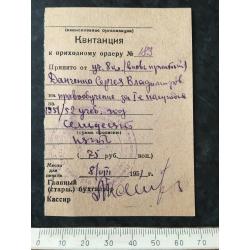 (наименование организации)
Квитанция
к приходному ордеру № 183
Принято от уч. 8 кл. (вновь принятый)
Данченко Сергея Владимиров
на правообучение за I е полугодие
1951/52 учеб. год
Семьдесят
пять
(сумма прописью)
( 75 руб. коп.)
Место для печати
8/VIII 1951 г.
Главный
(старш.) бухгалтер
Кассир